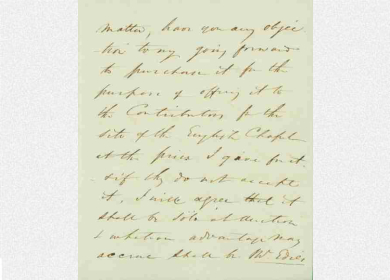 matter, have you any objec
tion to my going forward
to purchase it for the
purpose of offering it to
the Contributors for the
site of the English Chapel
at the price I gave for it.
if they do not accept
it, I will agree that it
shall be sold at auction
& whatever advantage may
accrue shall be Mr